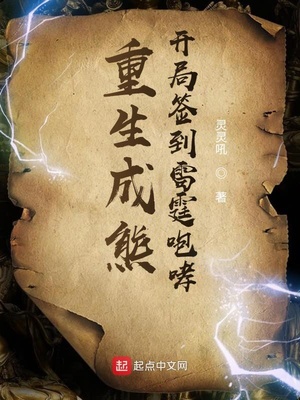 重生成熊
开局签到雷霆咆哮
灵灵吼 ◎ 著
起点中文网